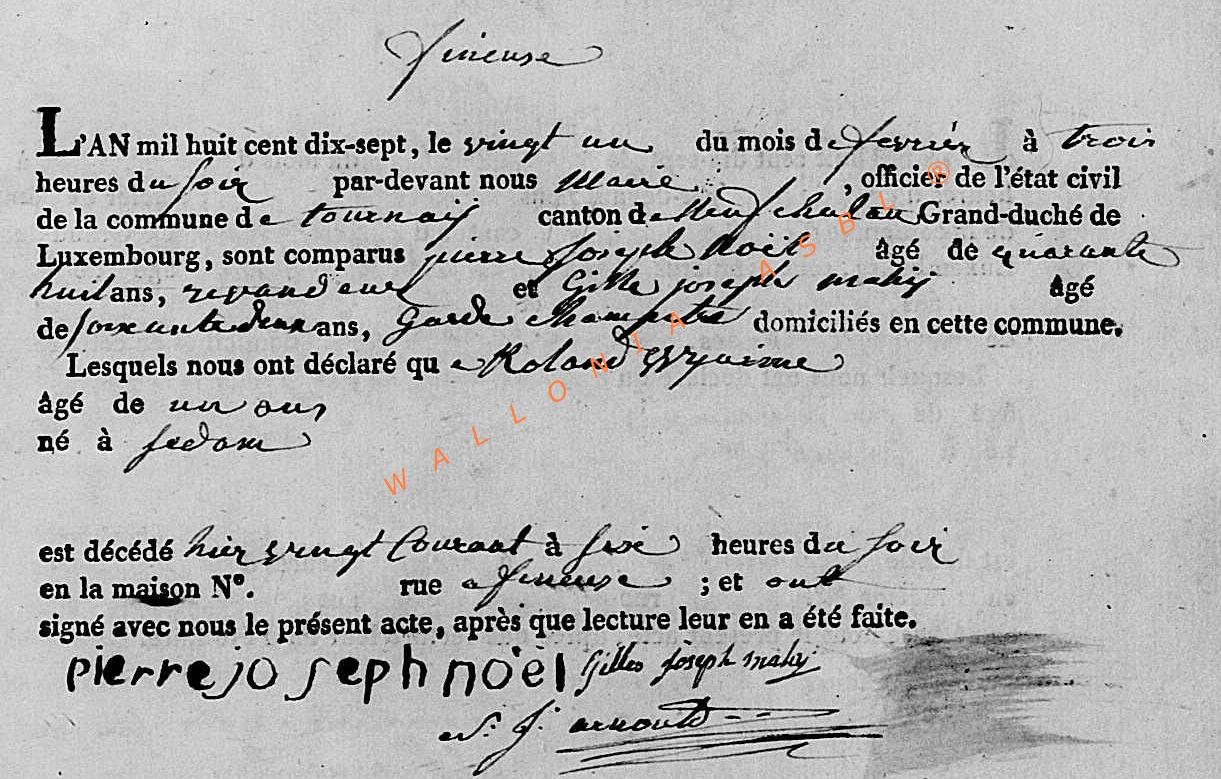 fineuse
L'AN mil huit cent dix-sept, le vingt un du mois de fevrier à trois
heures du soir par-devant nous Maire, officier de l'état civil
de la commune de tournaij canton de Neufchateau Grand-duché de
Luxembourg, sont comparus pierre Joseph Noël âgé de quarante
huit ans, revendeur et Gille joseph mahij âgé
de soixante deux ans, Garde Champetre domiciliés en cette commune.
Lesquels nous ont déclaré que Roland
âgé de un ans
né à sedan
est décédé hier vingt Courant à six heures du soir
en la maison N°. rue a fineuse ; et ont
signé avec nous le présent acte, après que lecture leur en a été faite.
pierre joseph noël Gilles Joseph mahij
J. arnould
WALLONIA ASBL ®